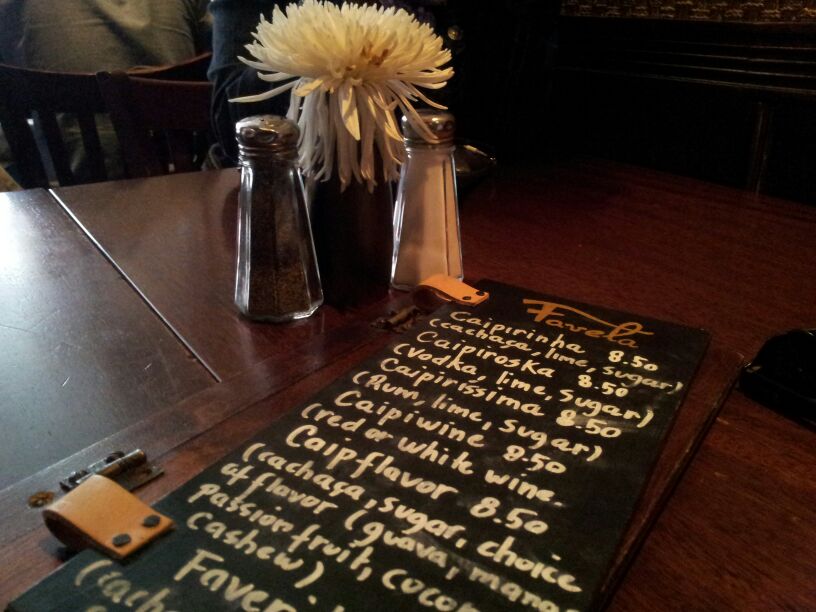 Favela
Caipirinha 8.50
(cachaça, lime, sugar)
Caipiroska 8.50
(Vodka, lime, sugar)
Caipirissima 8.50
(Rum, lime, sugar)
Caipiwine 8.50
(red or white wine.
Caipflavor 8.50
(cachaça, sugar, choice
of flavor (guava, mango
passion fruit, cocon
Cashew).
Faver
(cacha